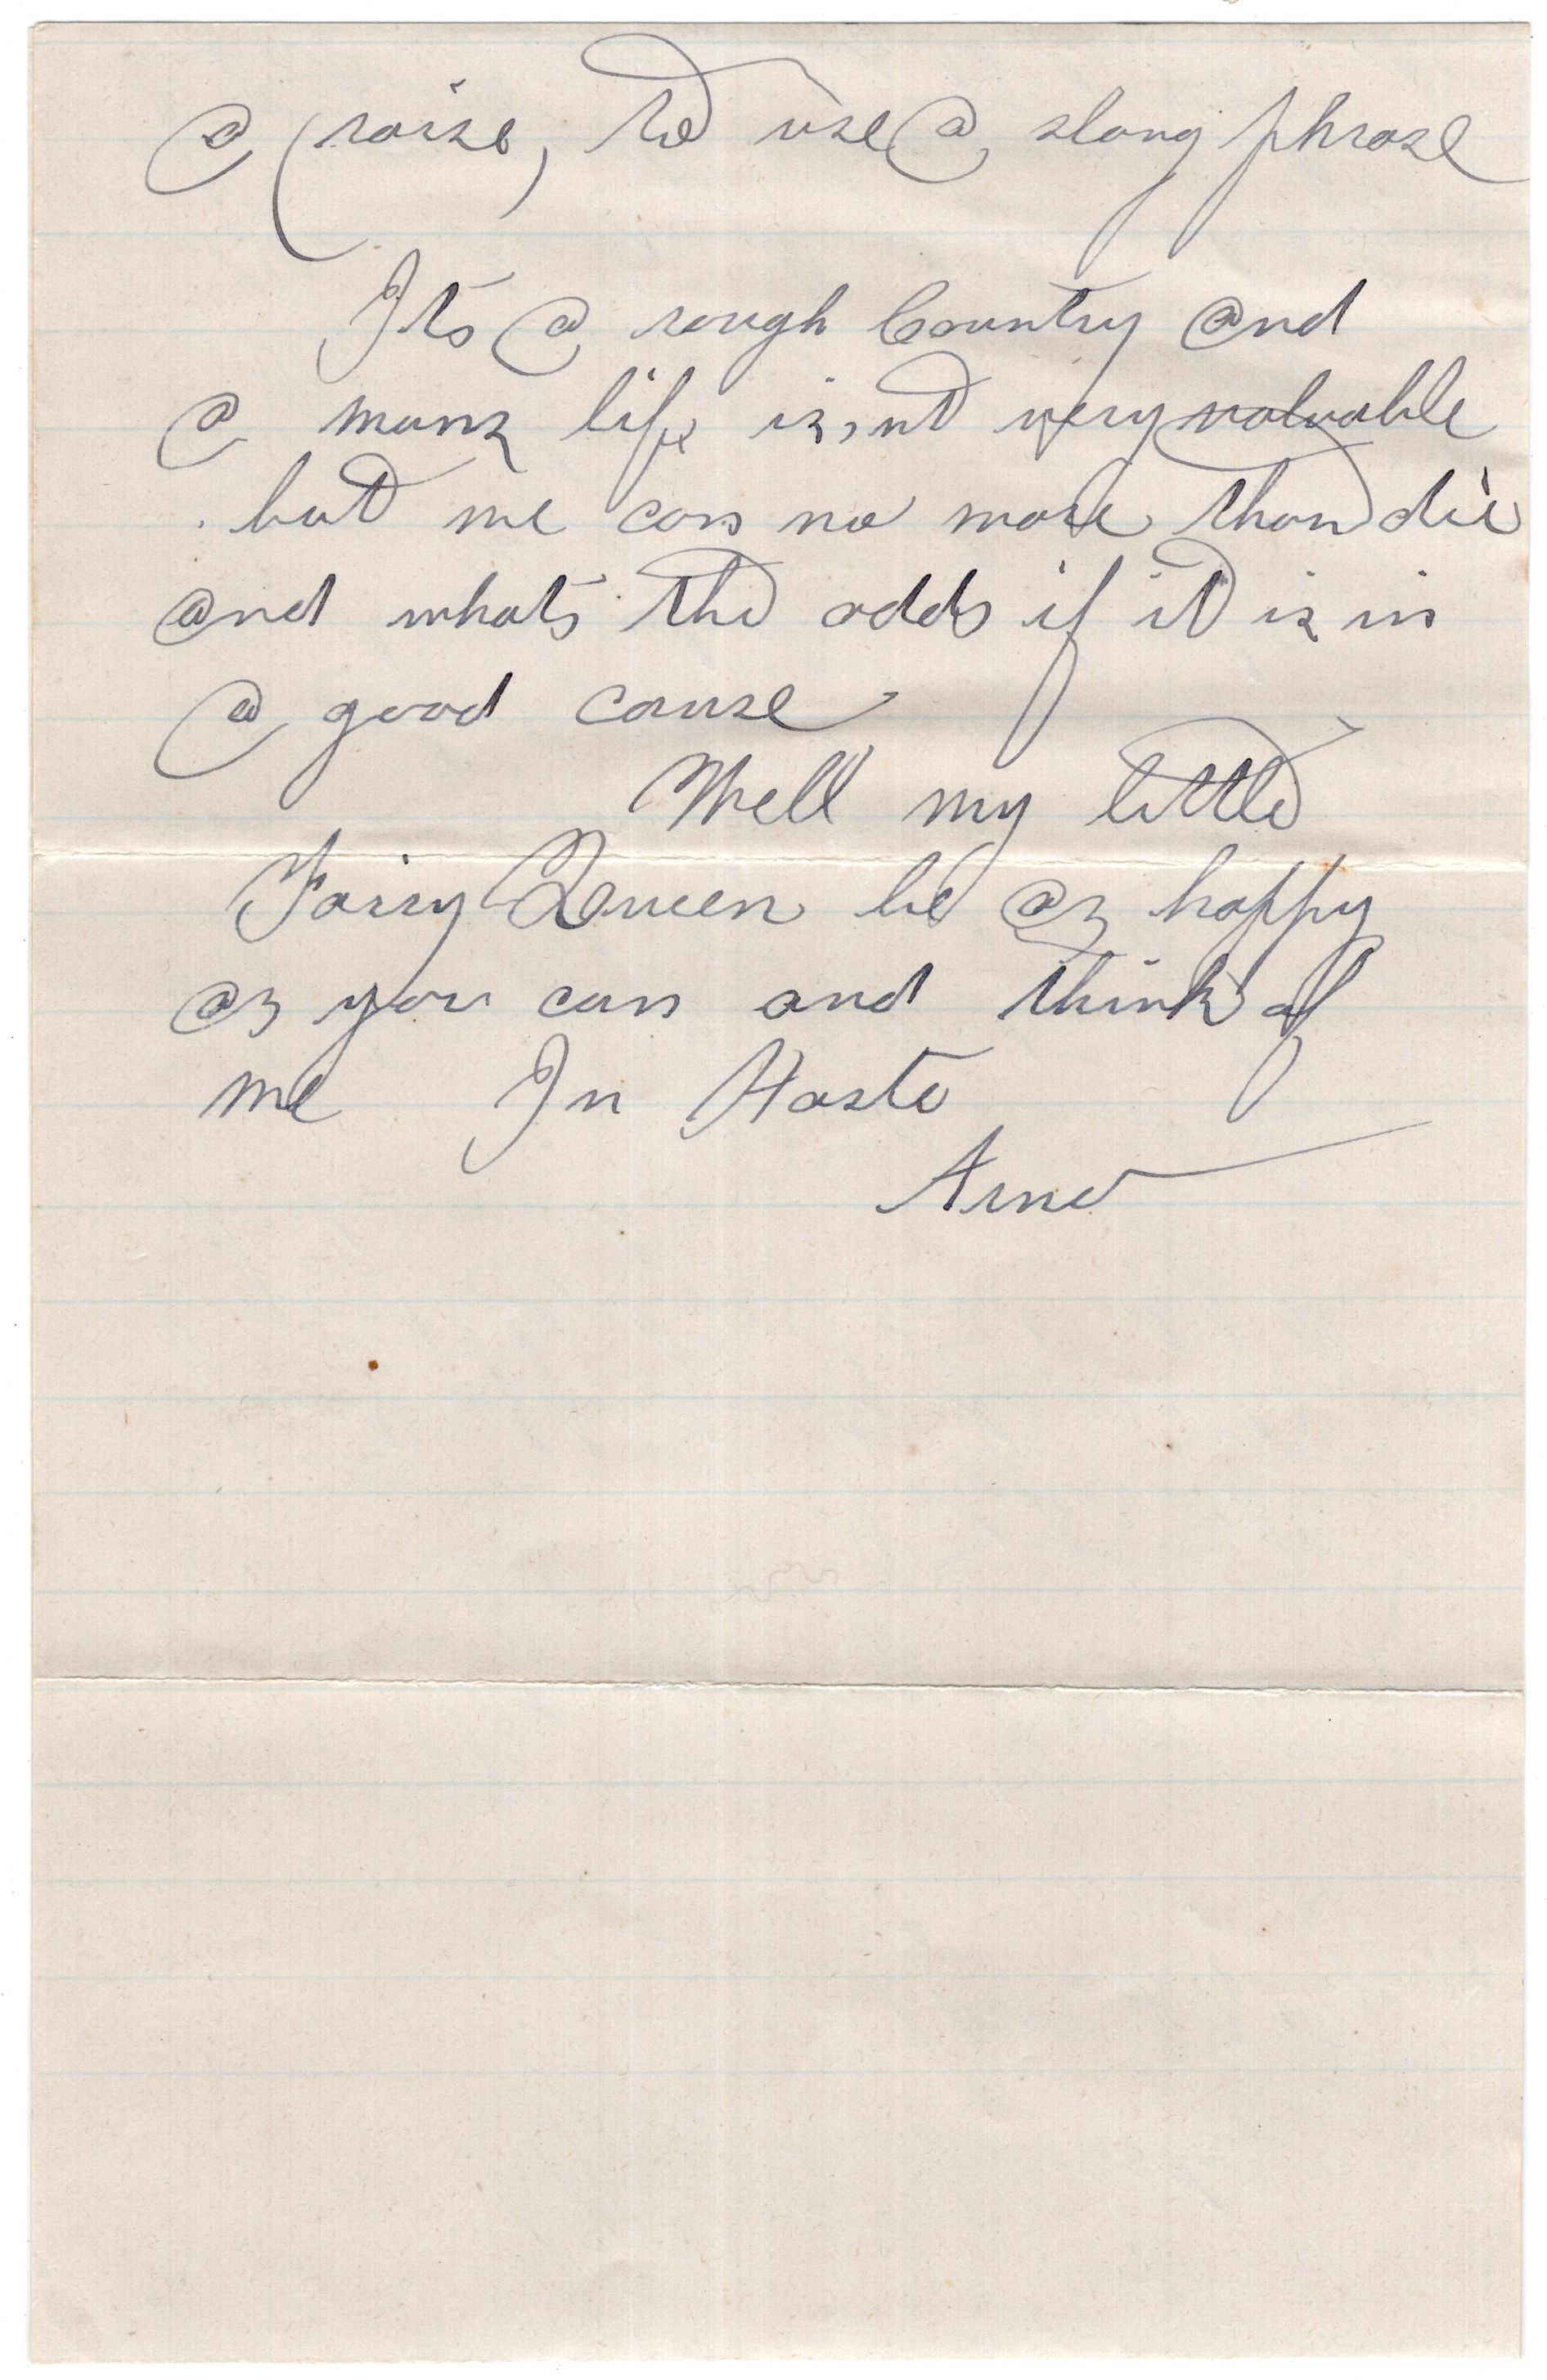 a (raise) to use a slang phrase
Its a rough Country and
a mans life is,nt very valuable
but we can no more than die
and whats the odds if it is in
a good cause
Well my little
Fairy Queen be as happy
as you can and think of
me In Haste
Arno